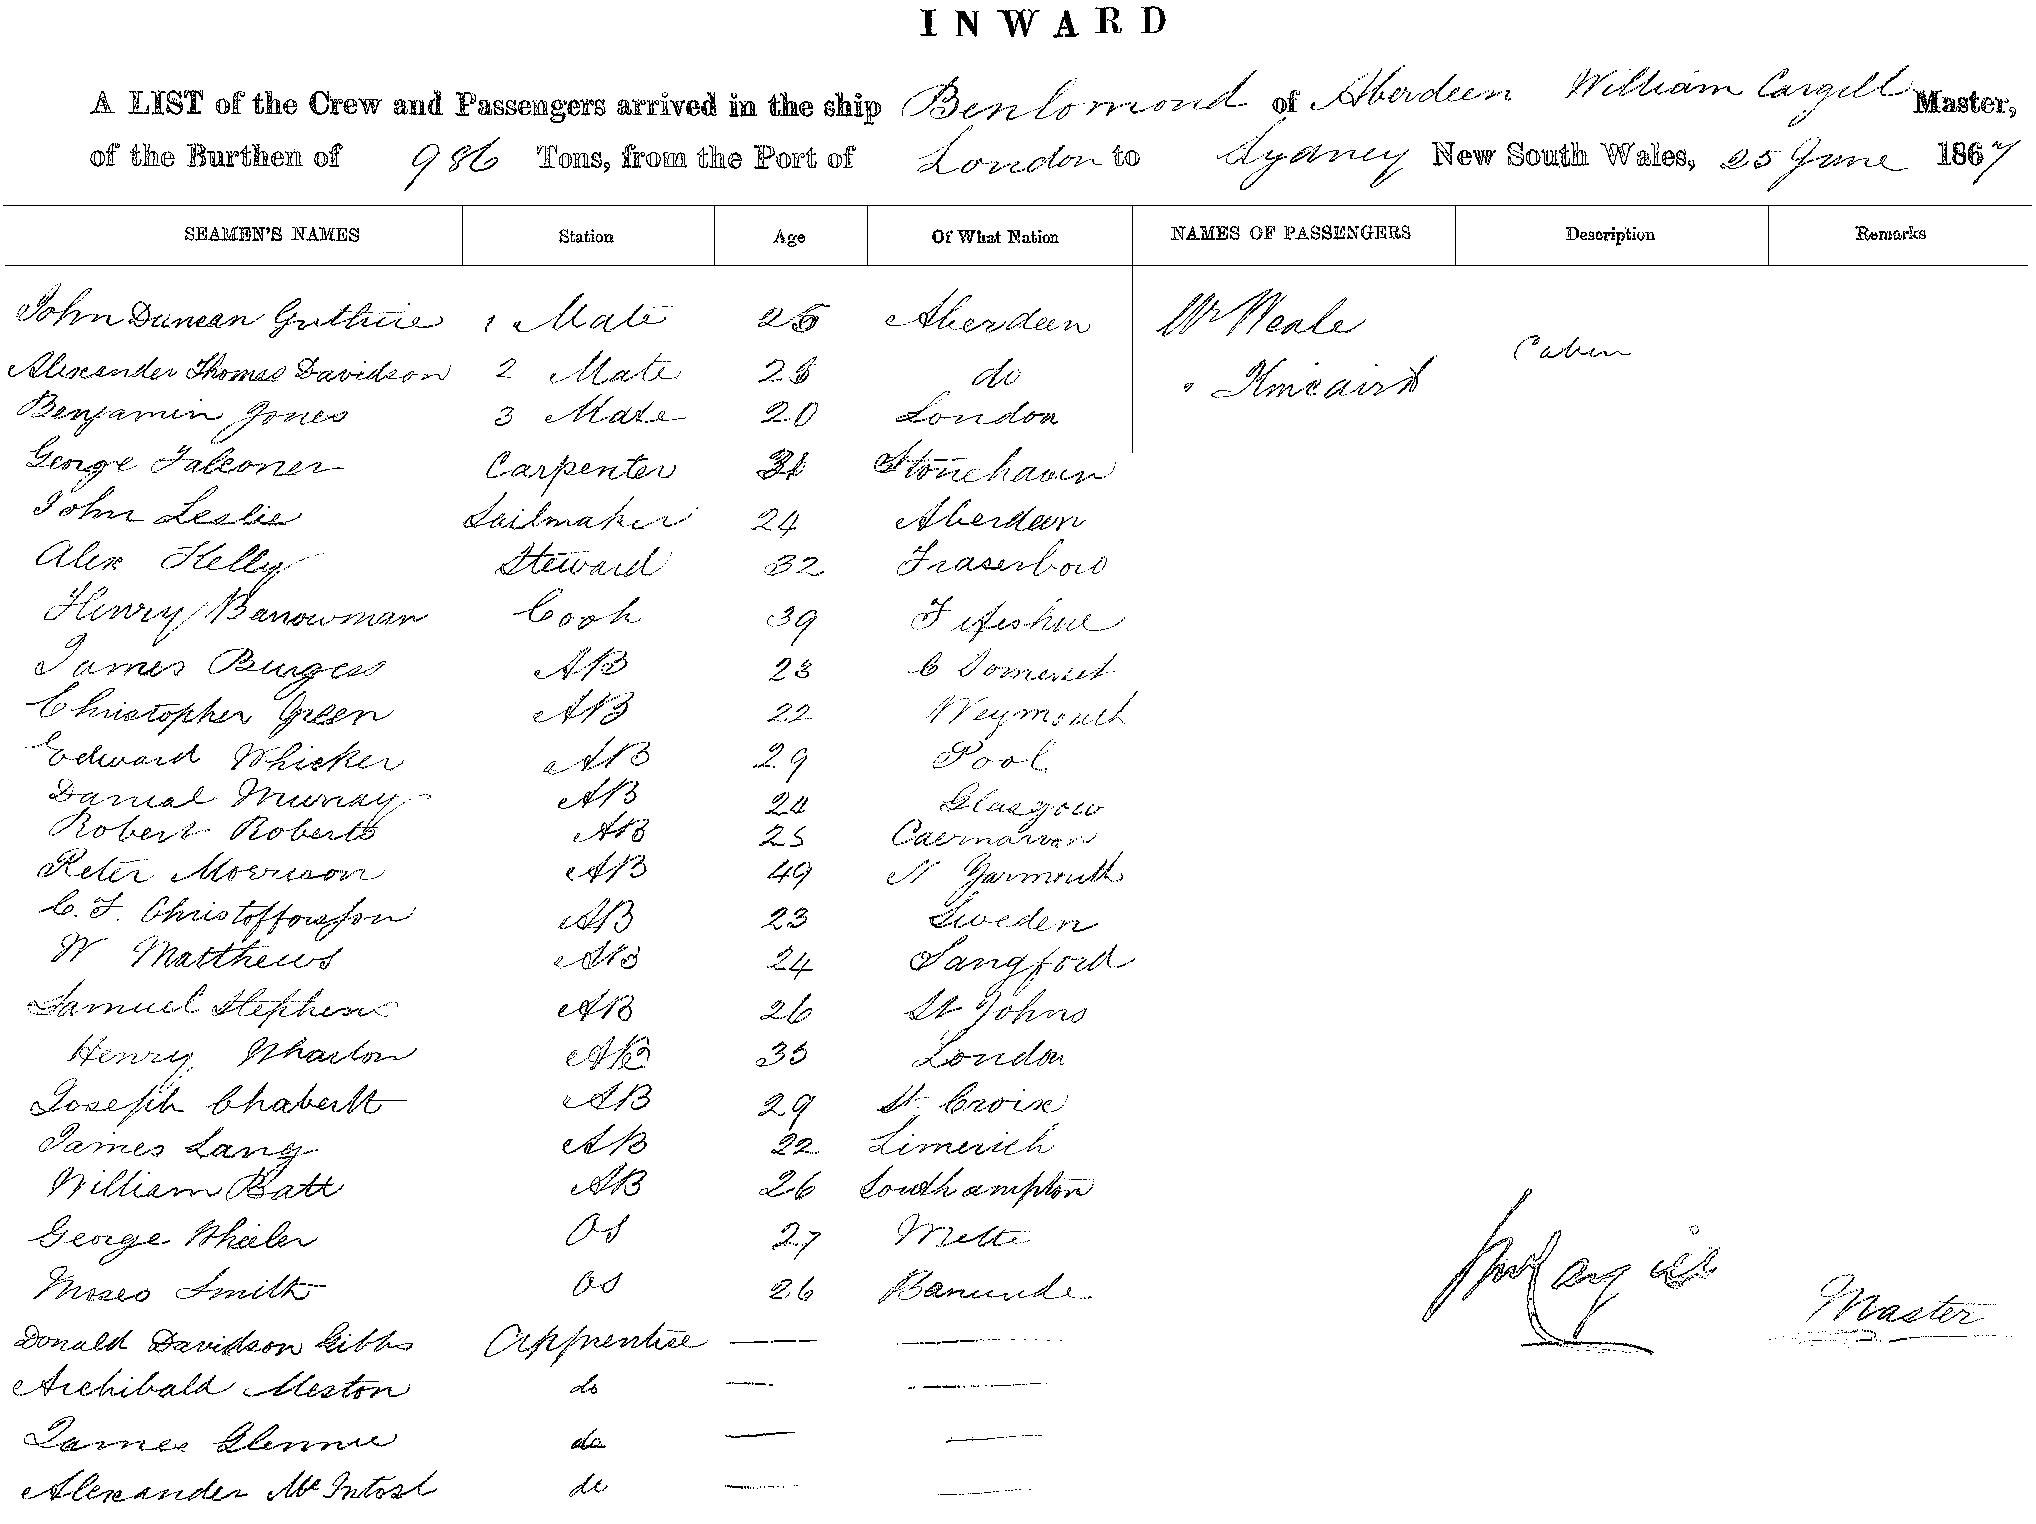 INWARD
A LIST of the Crew and Passengers arrived in the ship Benlomond of Aberdeen William Cargill Master,
of the Burthen of 986 Tons, from the Port of London to Sydney New South Wales, 25 June 1867
SEAMEN'S NAMES Station Age Of What Nation NAMES OF PASSENGERS Description Remarks
John Duncan Guthrie 1 Mate Aberdeen Mr Weale
Cabin
Alexander Thomas Davidson 2 Mate do " Kincaird
Benjamin Jones 3 Mate 20 London
George Falconer Carpenter 31 Stonehaven
John Leslie Sailmaker 24 Aberdeen
Alex Kelly Steward 32 Fraserboro
Henry Banowman Cook 39 Fifeshire
James Burgess AB 23 C Somerset
Christopher Green AB 22 Weymouth
Edward Whicker AB 29 Pool
Danial Murray AB 24 Glasgow
Robert Roberts AB 25 Caernarvon
Peter Morrison AB 49 N Yarmouth
C. F. Christofforsson AB 23 Sweden
W Matthews AB 24 Langford
Samuel Stephens AB 26 St Johns
Henry Wharton AB 35 London
Joseph Chabertt AB 29 St Croix
James Lang AB 22 Limerick
William Batt AB 26 Southampton
George Wheeler OS 27
Moses Smith OS 26
Donald Davidson Gibbs Apprentise — —
Archibald Meston do — —
James Glennie do — —
Alexander McIntosh do — —
Wm Cargill
Master